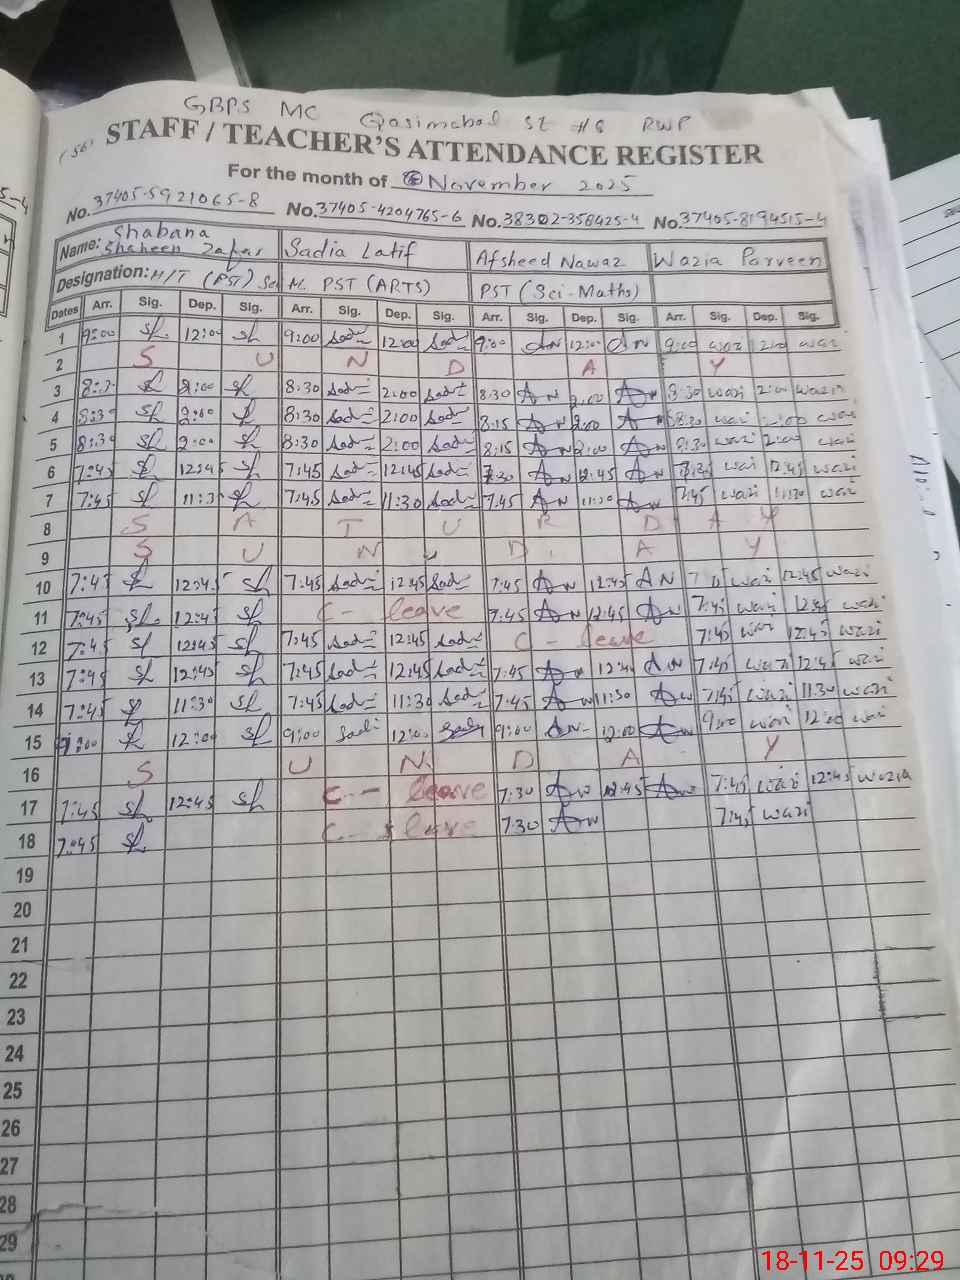 GBPS MC Qasimabad St #8 RWP
(56)
STAFF / TEACHER'S ATTENDANCE REGISTER
For the month of November 2025
No. 37405-5921065-8 No. 37405-4204765-6 No. 38302-358425-4 No. 37405-8194515-4
Name: Shabana Shaheen Zafar Sadia Latif Afsheed Nawaz Wazia Parveen
Designation: H/T (PST) Sci M. PST (ARTS) PST (Sci-Maths)
Dates Arr. Sig. Dep. Sig. Arr. Sig. Dep. Sig. Arr. Sig. Dep. Sig. Arr. Sig. Dep. Sig.
1 9:00 sh 12:00 sh 9:00 Sad 12:00 Sad 9:00 AN 12:00 AN 9:00 wazi 12:00 wazi
2 S U N D A Y
3 8:30 sh 2:00 sh 8:30 Sad 2:00 Sad 8:30 AN 2:00 AN 8:30 wazi 2:00 wazia
4 8:30 sh 2:00 sh 8:30 Sad 2:00 Sad 8:15 AN 2:00 AN 8:30 wazi 2:00 wazi
5 8:30 sh 2:00 sh 8:30 Sad 2:00 Sad 8:15 AN 2:00 AN 8:30 wazi 2:00 wazi
6 7:45 sh 12:45 sh 7:45 Sad 12:45 Sad 7:30 AN 12:45 AN wazi 12:45 wazi
7 7:45 sh 11:30 sh 7:45 Sad 11:30 Sad 7:45 AN 11:30 AN 7:45 wazi 11:30 wazi
8 S A T U R D A Y
9 S U N D A Y
10 7:45 sh 12:45 sh 7:45 Sad 12:45 Sad 7:45 AN 12:45 AN wazi 12:45 wazi
11 7:45 sh 12:45 sh C- leave 7:45 AN 12:45 AN 7:45 wazi 12:45 wazi
12 7:45 sh 12:45 sh 7:45 Sad 12:45 Sad C- leave 7:45 wazi 12:45 wazi
13 7:45 sh 12:45 sh 7:45 Sad 12:45 Sad 7:45 AN 12:45 AN 7:45 wazi 12:45 wazi
14 7:45 sh 11:30 sh 7:45 Sad 11:30 Sad 7:45 AN 11:30 AN 7:45 wazi 11:30 wazi
15 9:00 sh 12:00 sh 9:00 Sadi 12:00 Sadi 9:00 AN 12:00 AN 9:00 wazi 12:00 wazi
16 S U N D A Y
17 7:45 sh 12:45 sh C-- leave 7:30 AN 12:45 AN 7:45 wazi 12:45 wazia
18 7:45 sh C-- leave 7:30 AN 7:45 wazi
19
20
21
22
23
24
25
26
27
28
29
18-11-25 09:29